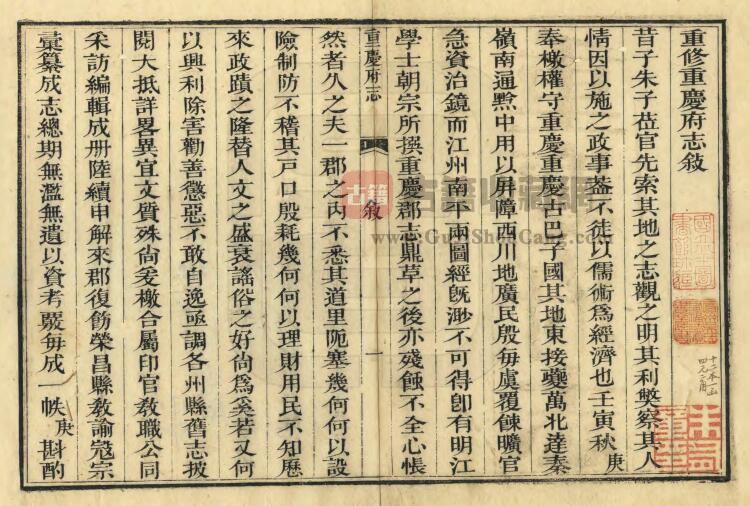 重修重慶府志敘
昔子朱子莅官先索其地之志觀之明其利獘察其人
情因以施之政事葢不徒以儒術爲經濟也壬寅秋庚
奉檄權守重慶重慶古巴子國其地東接夔萬北達秦
嶺南通黔中用以屏障西川地廣民殷每虞覆餗曠官
急資治鏡而江州南平兩圖經既渺不可得卽有明江
學士朝宗所撰重慶郡志鼎革之後亦殘蝕不全心悵
然者久之夫一郡之內不悉其道里阨塞幾何何以設
險制防不稽其戶口殷耗幾何何以理財用民不知歷
來政蹟之隆替人文之盛衰謠俗之好尚爲奚若又何
以興利除害勸善懲惡不敢自逸亟調各州縣舊志披
閱大抵詳畧異宜文質殊尚爰檄合屬印官教職公同
采訪編輯成册陸續申解來郡復飭榮昌縣教諭寇宗
彙纂成志總期無濫無遺以資考覈每成一帙庚斟酌
重慶府志
敘
一
古籍
古籍收藏网
www.GuJiShouCang.com